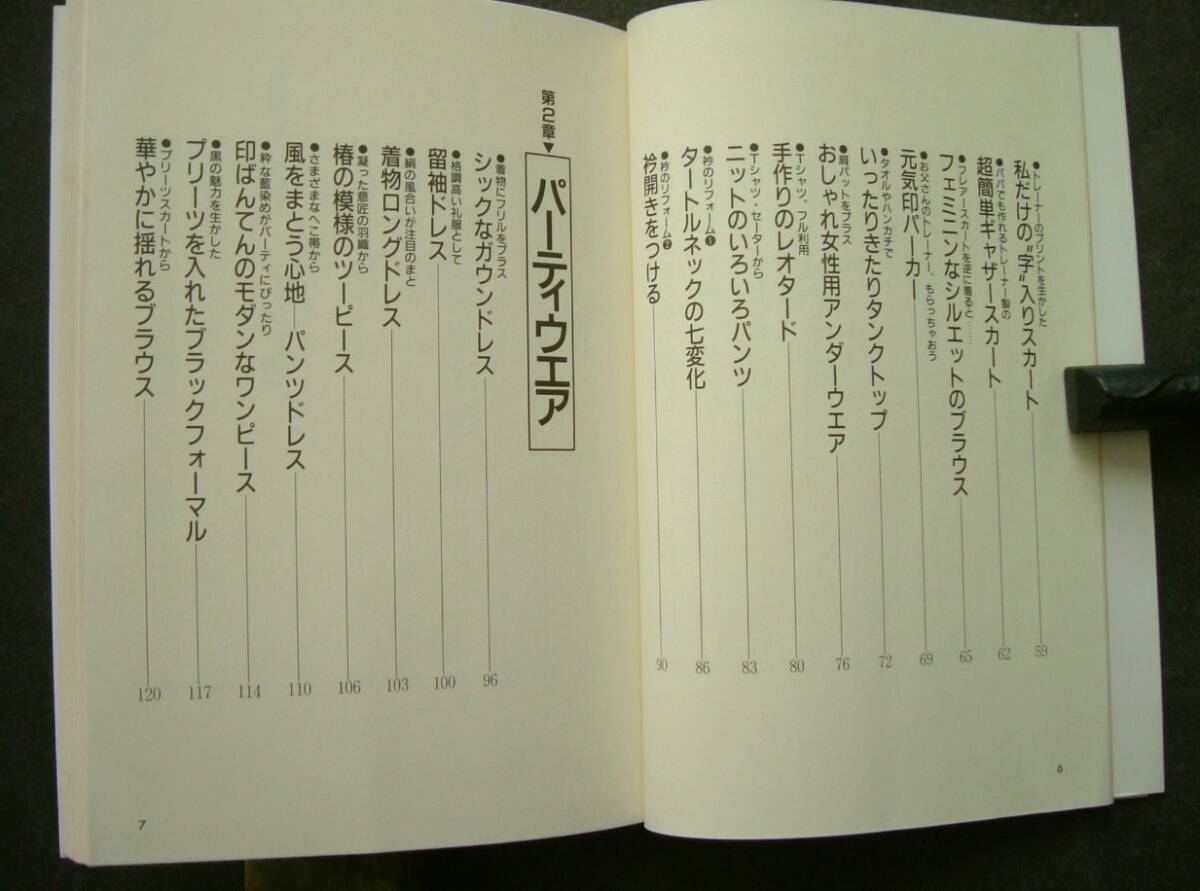 ●トレーナーのプリントを生かした
私だけの〝字〟入りスカート 59
●パパでも作れるトレーナー製の
超簡単ギャザースカート 62
●フレアースカートを逆に着ると……
フェミニンなシルエットのブラウス 65
●お父さんのトレーナー、もらっちゃおう
元気印パーカー 69
●タオルやハンカチで
いったりきたりタンクトップ 72
●肩パットをプラス
おしゃれ女性用アンダーウエア 76
●Tシャツ、フル利用
手作りのレオタード 80
●Tシャツ・セーターから
ニットのいろいろパンツ 83
●衿のリフォーム❶
タートルネックの七変化 86
●衿のリフォーム❷
衿開きをつける 90
6
第2章▼パーティウエア
●着物にフリルをプラス
シックなガウンドレス 96
●格調高い礼服として
留袖ドレス 100
●絹の風合いが注目のまと
着物ロングドレス 103
●凝った意匠の羽織から
椿の模様のツーピース 106
●さまざまなへこ帯から
風をまとう心地―パンツドレス 110
●粋な藍染めがパーティにぴったり
印ばんてんのモダンなワンピース 114
●黒の魅力を生かした
プリーツを入れたブラックフォーマル 117
●プリーツスカートから
華やかに揺れるブラウス 120
7